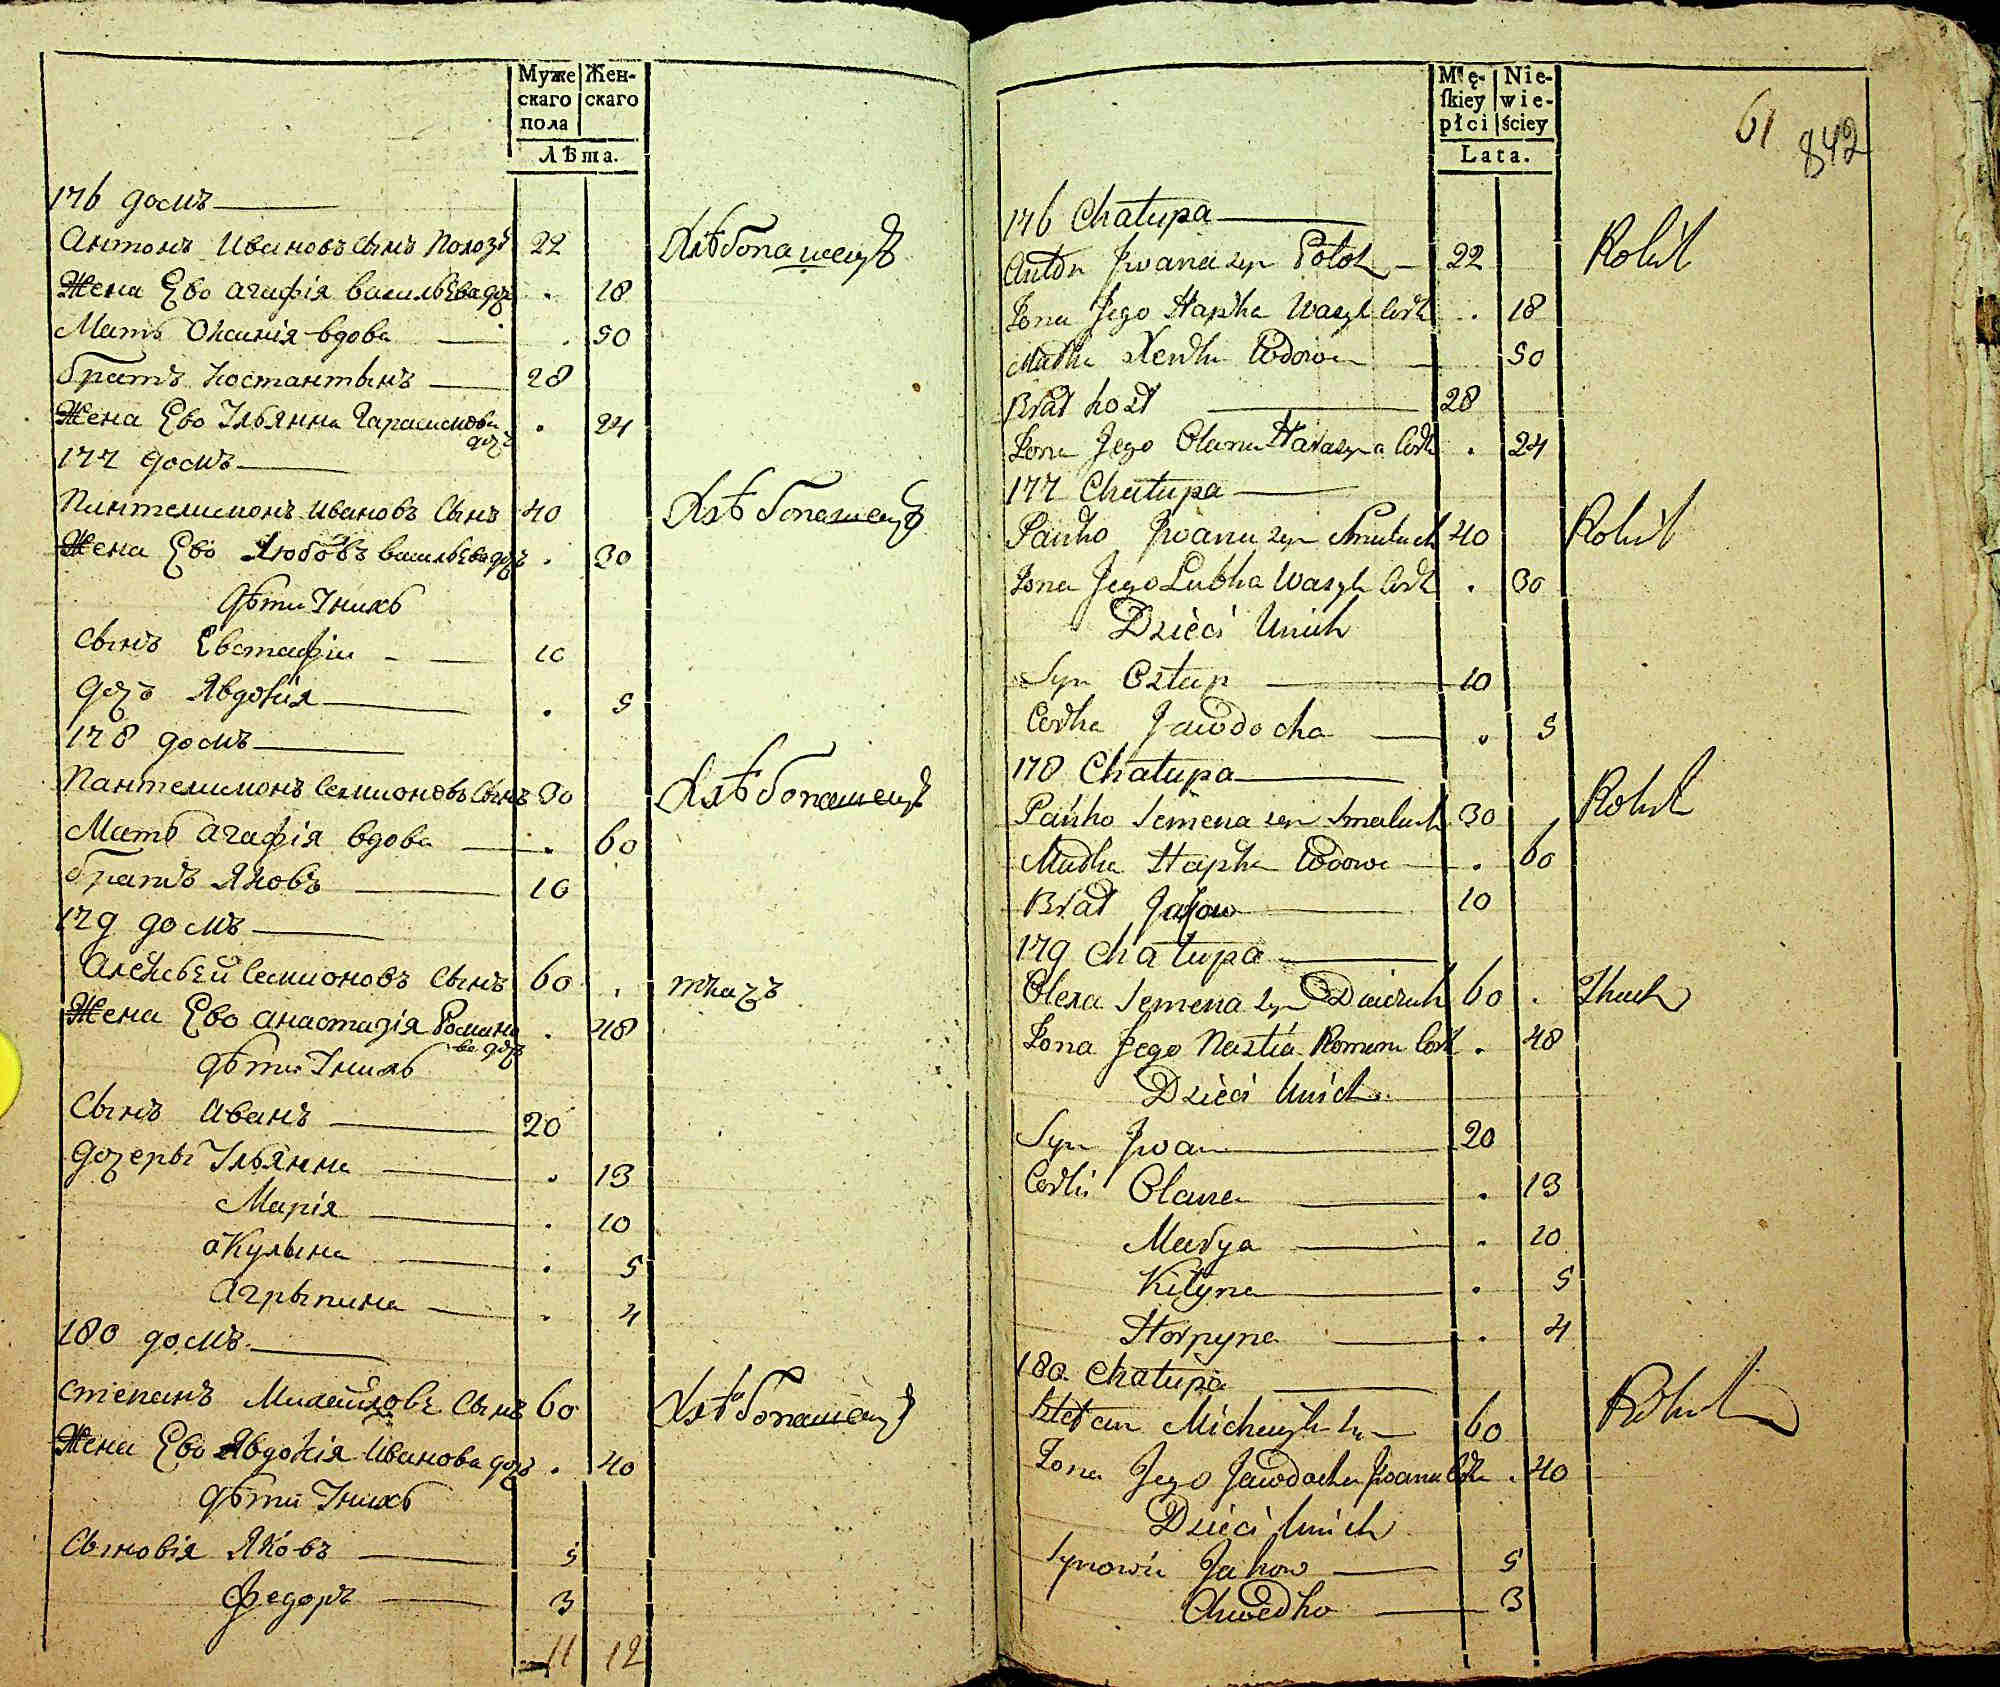 Муже
скаго
пола
Жен-
скаго
Лѣта.
176 домъ
Антонъ Ивановъ сынъ Полозъ 22 Хлѣбопашецъ
Жена Ево Агафія Васильева доч . 18
Мать Оксинія вдова . 50
братъ Костантынъ 28
Жена Ево Ульянна Гарасимова . 24
доч
177 домъ
Пантелимонъ Ивановъ Сынъ 40 Хлѣбопашецъ
Жена Ево Любовъ Васильева доч . 30
Дѣти Унихъ
Сынъ Евстафіи 10
Доч Явдокія . 5
178 домъ
Пантелимонъ Семионовъ Сынъ 30 Хлѣбопашецъ
Мать Агафія вдова . 60
братъ Яковъ 10
179 домъ
Алексѣй Семионовъ Сынъ 60 . ткачъ
Жена Ево Анастазія Романо . 48
ва доч
Дѣти Унихъ
Сынъ Иванъ 20
Дочеры Ульянна . 13
Марія . 10
Акулына . 5
Агрыпина . 4
180 домъ
Степанъ Михайловъ Сынъ 60 Хлѣбопашецъ
Жена Ево Явдокія Иванова доч . 40
Дѣти Унихъ
Сыновія Яковъ 5
Федоръ 3
11 12
Mię-
ſkiey
płci
Nie-
wie-
ściey
Lata.
61
842
176 Chałupa
Anton Jwana syn Połoz 22 Rolnik
Zona Jego Hapka Wasyla Cork . 18
Matka Xenka Wdowa 50
Brat Kost 28
Zona Jego Olana Harasyma Cork . 24
177 Chałupa
Pańko Jwana syn 40 Rolnik
Zona Jego Lubka Wasyla Cork . 30
Dzieci Unich
Syn Ostap 10
Corka Jawdocha . 5
178 Chałupa
Pańko Semena syn 30 Rolnik
Matka Hapka Wdowa . 60
Brat Jakow 10
179 Chałupa
Olexa Semena syn 60 . Tkach
Zona Jego Nastia Romana Cork . 48
Dzieci Unich
Syn Jwan 20
Corki Olana . 13
Marya . 10
Kilyna . 5
Horpyna . 4
180 Chałupa
Stefan Michayła syn 60 Rolnik
Zona Jego Jawdocha Jwana Cork . 40
Dzieci Unich
Synowie Jakow 5
Chwedko 3